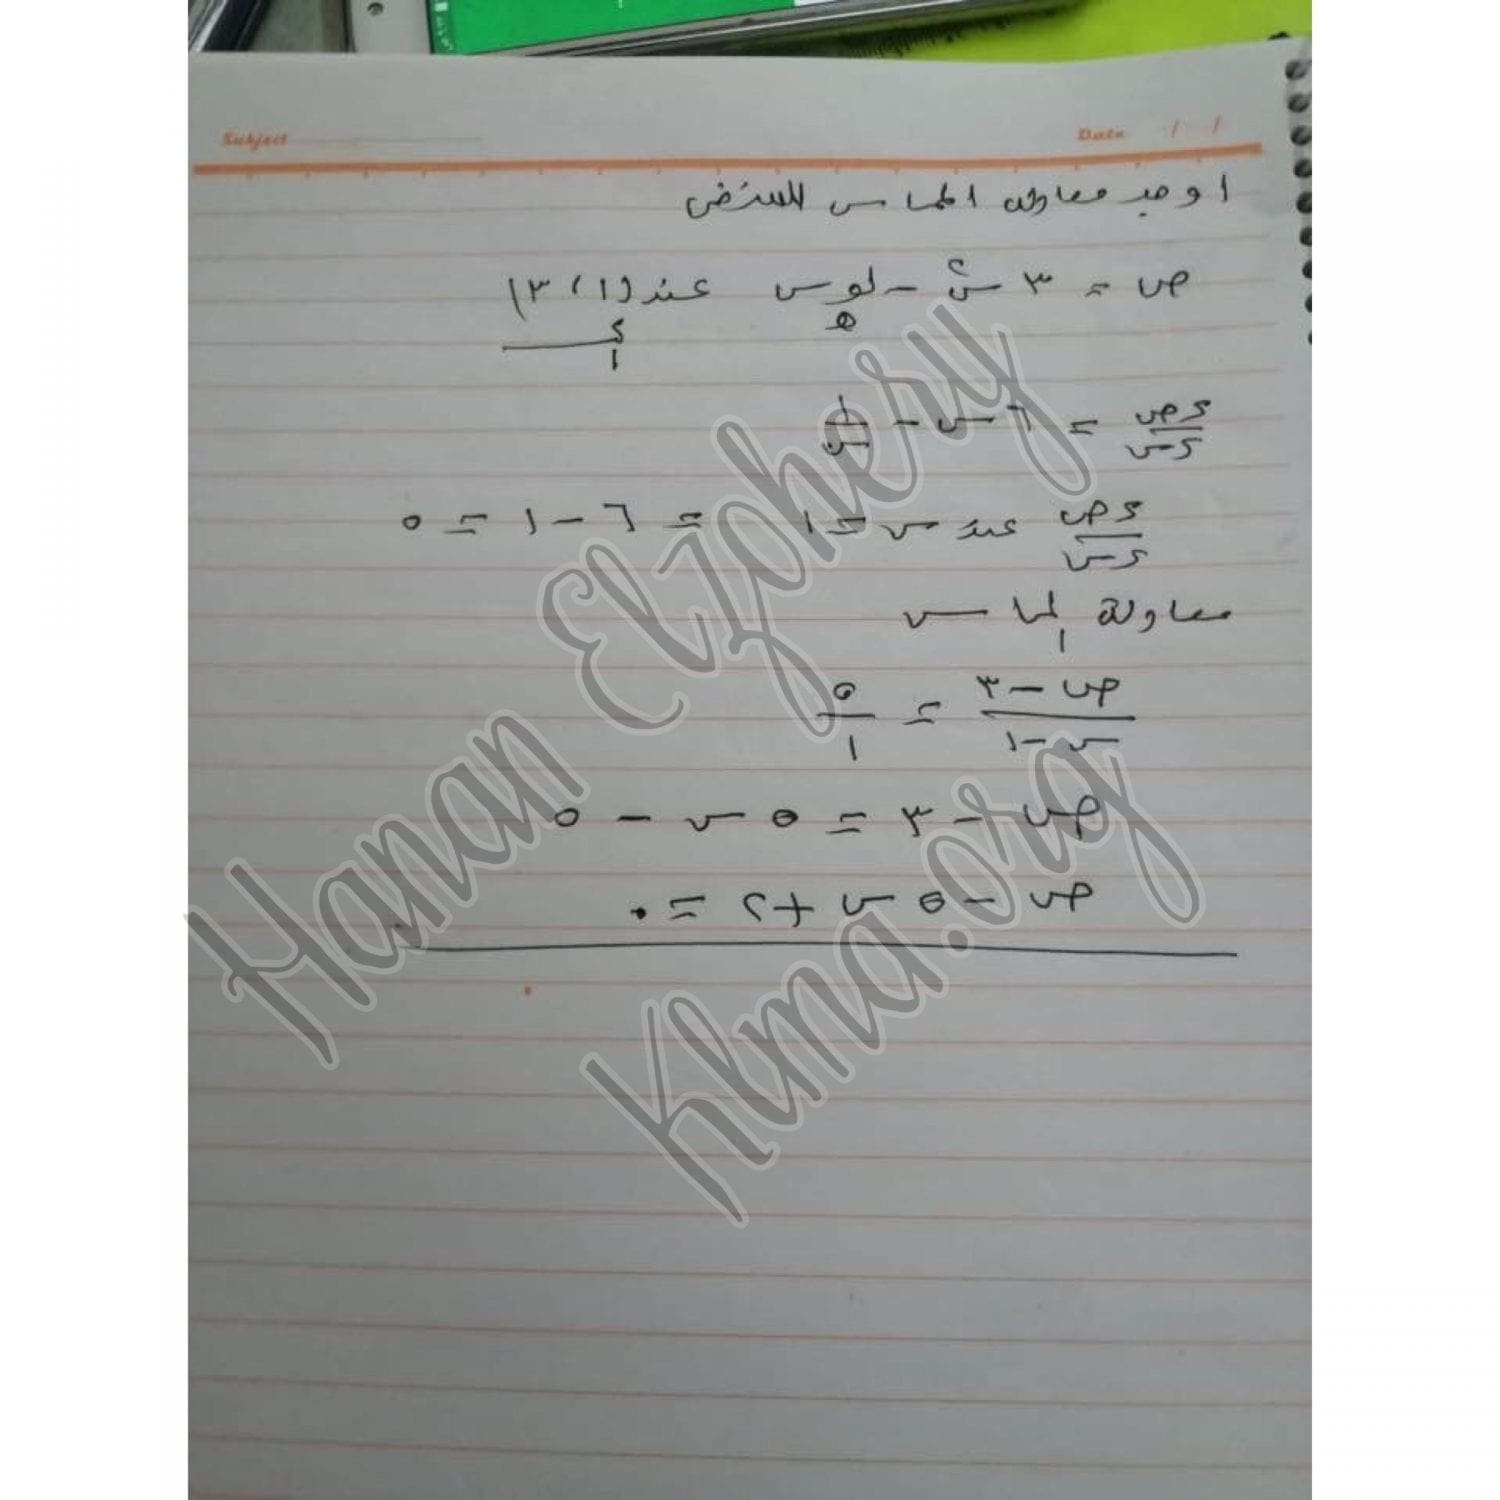 Subject
Date / /
اوجد معادلة المماس للمنحنى
ص = ٣ س٢ - لو_هـ س عند (١ ، ٣)
الحل
دص/دس = ٦ س - ١/س
دص/دس عند س = ١ = ٦ - ١ = ٥
معادلة المماس
(ص - ٣)/(س - ١) = ٥/١
ص - ٣ = ٥ س - ٥
ص - ٥ س + ٢ = ٠
Hanan Elzohery
Klma.org